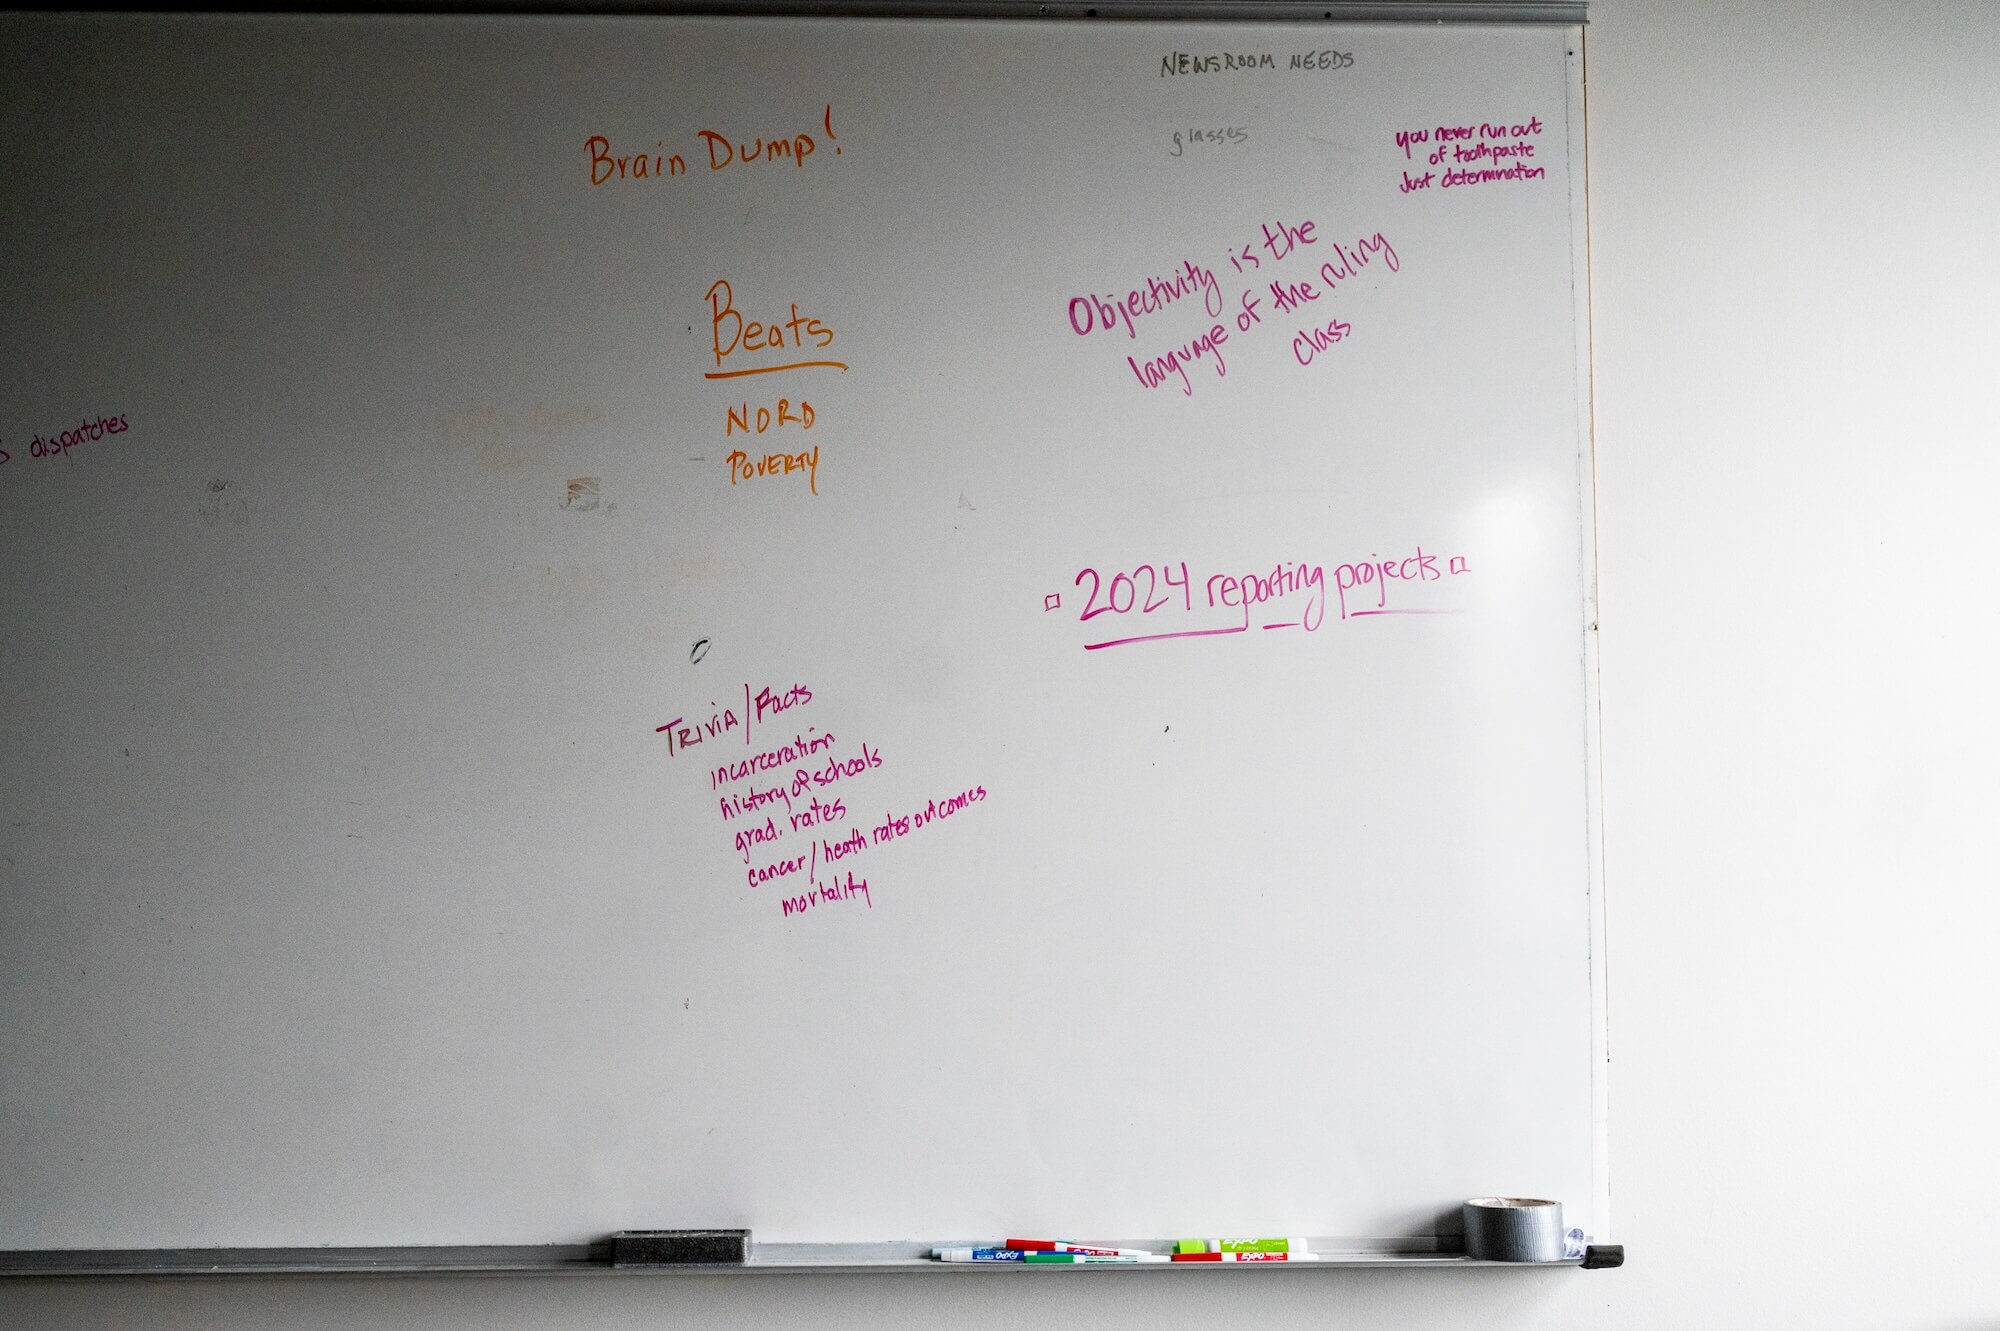 NEWSROOM NEEDS
glasses
you never run out
of toothpaste
Just determination
Brain Dump!
Objectivity is the
language of the ruling
class
Beats
NORD
POVERTY
dispatches
2024 reporting projects
TRIVIA/Facts
incarceration
history of schools
grad. rates
cancer/heath rates outcomes
mortality
EXPO
EXPO
EXPO